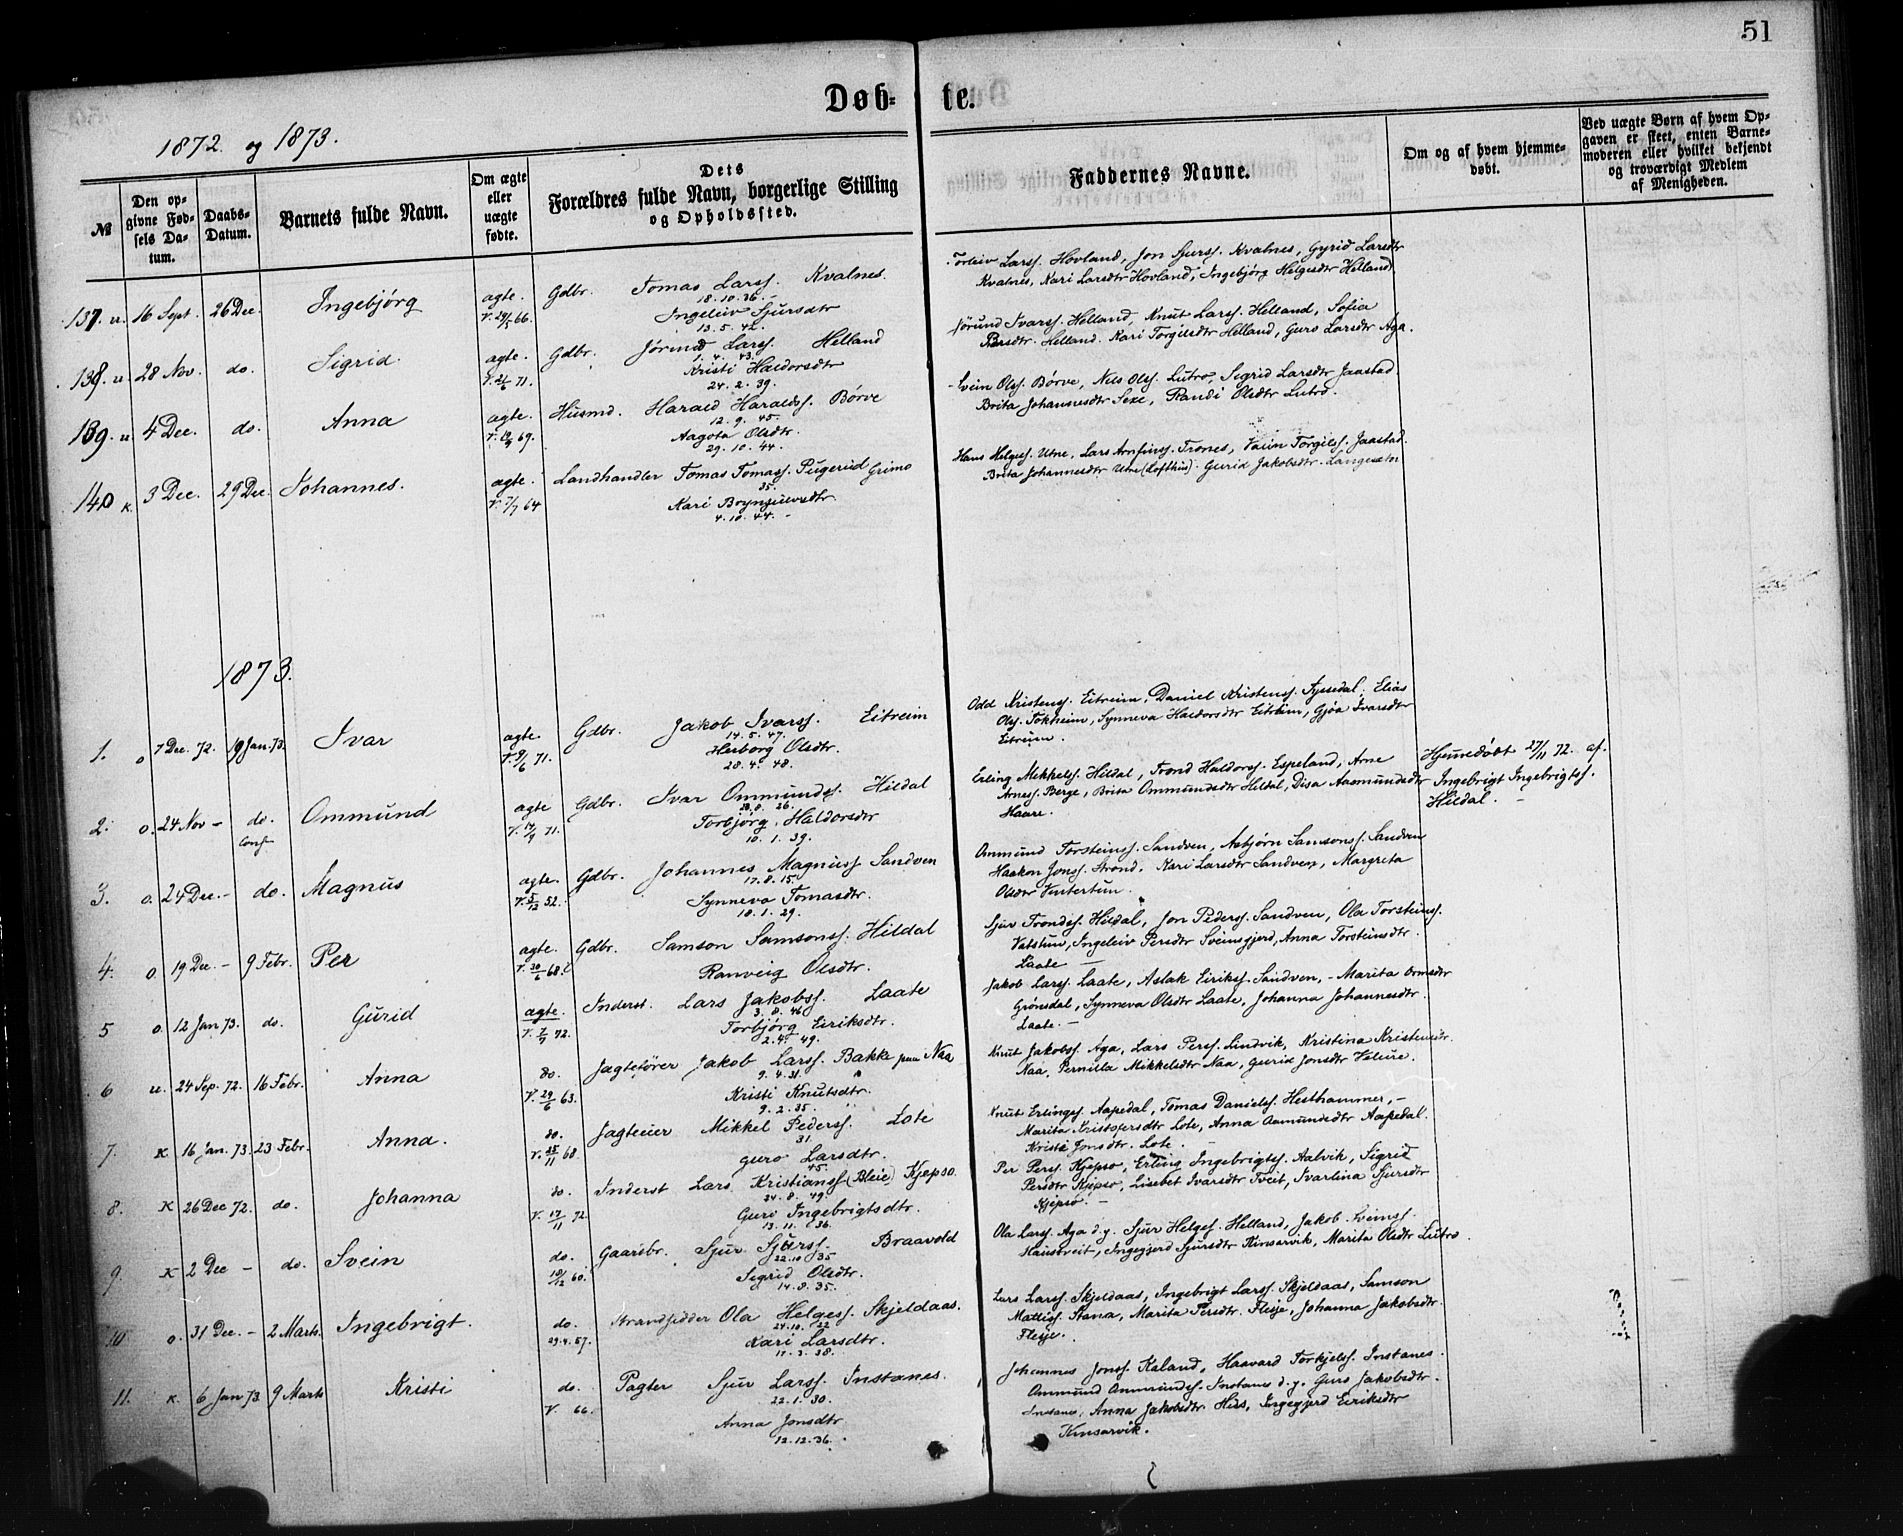 51
Døb- te.
1872. og 1873.
№
Den op-
givne Fød-
sels Da-
tum.
Daabs-
Datum.
Barnets fulde Navn.
Om ægte
eller
uægte
fødte.
Dets
Forældres fulde Navn, borgerlige Stilling
og Opholdssted.
Faddernes Navne.
Om og af hvem hjemme-
døbt.
Ved uægte Børn af hvem Op-
gaven er skeet, enten Barne-
moderen eller hvilket bekjendt
og troværdigt Medlem
af Menigheden.
137. u. 16 Sept. 26 Dec. Ingebjørg ægte. Gdbr. Tomas Larss. Kvalnes.
18.10.36.
Ingeleiv Sjursdtr
13.5.42.
Torleiv Larss. Hovland, Jon Sjurss. Kvalnes, Gyrid Larsdtr
Kvalnes, Kari Larsdtr Hovland, Ingebjörg Helgesdtr Helland.
138. u. 28 Nov. do. Sigrid. ægte. Gdbr. Jörund Larss. Helland
1.4.43.
V. 71. Kristi Haldorsdtr
24.2.39.
Jörund Ivarss. Helland, Knut Larss. Helland, Sofia
Persdtr. Helland. Kari Torgilsdtr Helland, Guro Larsdtr Aga.
139. u. 4 Dec. do. Anna ægte. Husmd. Harald Haraldss. Börve
12.9.45.
V. 69. Aagota Olsdtr.
29.10.44.
Svein Olss. Börve, Nils Olss. Lutro, Sigrid Larsdtr Jaastad
Brita Johannesdtr Sexe, Randi Olsdtr Lutro.
140 K. 3 Dec. 29 Dec. Johannes. ægte. Landhandler Tomas Tomass. Grimo
35.
V. 7/7 64 Kari Brynjulvsdtr.
4.10.44.
Hans Helgess. Utne, Lars Arnfinss. Trones, Torgilss. Jaastad.
Brita Johannesdtr Utne (Lofthus). Gurid Jakobsdtr. Langesæter
1873.
1. o 7 Dec. 72. 19 Jan. 73. Ivar ægte. Gdbr. Jakob Ivarss. Eitreim
14.5.47.
V. 9/6 71. Herborg Olsdtr.
28.4.48.
Odd Kristenss. Eitreim, Daniel Kristenss. Tyssedal, Elias
Olss. Tokheim, Synneva Haldorsdtr Eitreim, Gjöa Ivarsdtr
Eitreim.
2. o. 24 Nov - do. Ommund ægte Gdbr. Ivar Ommundss. Hildal
26.
V. 71. Torbjørg Haldorsdtr
10.1.39.
Erling Mikkelss. Hildal, Trond Haldorss. Espeland, Arne
Arness. Berge, Brita Ommundsdtr Hildal, Disa Aamundsdtr
Haare.
Hjemedöbt 27/11 72. af.
Ingebrigt Ingebrigtss.
Hildal.
3. o. 24 Dec. - do. Magnus ægte. Gdbr. Johannes Magnuss Sandven
17.8.15.
V. 5/12 52. Synneva Tomasdtr.
10.1.29.
Ommund Torsteinss. Sandven, Asbjörn Samsonss. Sandven
Haakon Jonss. Strand, Kari Larsdtr Sandven, Margreta
Olsdtr Vintertun.
4. o. 19 Dec. - 9 Febr. Per ægte. Gdbr. Samson Samsonss. Hildal
V. 68. Ranveig Olsdtr.
Sjur Trondss. Hildal, Jon Pederss. Sandven, Ola Torsteinss.
Vatstun, Ingeleiv Persdtr Sveinsgjerd, Anna Torsteinsdtr.
Laate
5 o. 12 Jan 73. do. Gurid ægte. Inderst. Lars Jakobss. Laate
3.8.46
V. 72. Torbjörg Eiriksdtr.
2.4.49.
Jakob Larss. Laate, Aslak Eirikss. Sandven, - Marita Ormsdtr
Grönsdal, Synneva Olsdtr Laate, Johanna Johannesdtr.
Laate. -
6 u. 24 Sep. 72. 16 Febr. Anna do. Jagtefører Jakob Larss. Bakke paa Naa
9.4.31.
V. 29/6 63. Kristi Knutsdtr.
9.2.35.
Knut Jakobss. Aga, Lars Perss. Lindvik, Kristina Kristensdtr.
Naa, Pernilla Mikkelsdtr Naa, Gurid Jonsdtr Velure.
7. K 16 Jan. 73. 23 Febr. Anna. do. Jagteeier Mikkel Pederss. Lote
31.
V. 25/11 68 Guro Larsdtr.
45.
Knut Erlingss. Aapedal, Tomas Danielss. Hesthammer, -
Marita Kristofersdtr Lote, Anna Aamundsdtr Aapedal.
Kristi Jonsdtr. Lote.
8. K 26 Dec 72. do. Johanna do. Inderst Lars Kristianss (Bleie) Kjepso.
24.8.49.
V. 17/11 72. Guro Ingebrigtsdtr.
13.11.36.
Per Perss. Kjepso, Erling Ingebrigtss. Aalvik, Sigrid
Persdtr Kjepso, Lisebet Ivarsdtr Tveit, Ivarlina Sjursdtr
Kjepso. -
9. K 2 Dec - do. Svein do. Gaardbr. Sjur Sjurss. Braavold
22.10.35
10/12 60. Sigrid Olsdtr.
14.8.35.
Ola Larss. Aga d.y. Sjur Helgess. Helland, Jakob Sveinss.
Haustveit, Ingegjerd Sjursdtr Kinsarvik, Marita Olsdtr Lutro.
10 o. 31 Dec. - 2 Marts. Ingebrigt. do. Strandsidder Ola Helgess. Skjeldaas.
24.10.22
29.4.57. Kari Larsdtr.
17.3.38.
Lars Larss. Skjeldaas, Ingebrigt Larss. Skjeldaas, Samson
Matiss. Stana, Marita Persdtr. Flesje, Johanna Jakobsdtr.
Flesje.
11. K. 6 Jan 73. 9 Marts Kristi do. Pagter Sjur Larss. Instanes.
22.1.30.
V. 66. Anna Jonsdtr
12.12.36.
Johannes Jonss. Kaland, Haavard Torkjelss. Instanes.
Ommund Ommundss. Instanes d.y. Guro Jakobsdtr.
Instanes, Anna Jakobsdtr. Hiss, Ingegjerd Eiriksdtr
Kinsarvik.